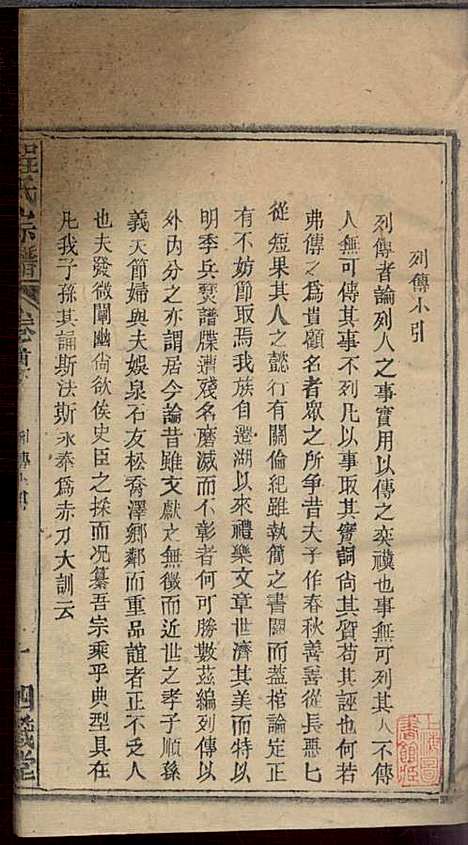 列傳小引
列傳者論列人之事實用以傳之奕禩也事無可列其人不傳
人無可傳其事不列凡以事取其實詞尚其質苟其誣也何若
弗傳之為貴顧名者眾之所爭昔夫子作春秋善善從長惡惡
從短果其人之懿行有關倫紀雖執簡之書闕而蓋棺論定正
有不妨節取焉我族自遷湖以來禮樂文章世濟其美而特以
明季兵燹譜牒遭殘名磨滅而不彰者何可勝數茲編列傳以
外內分之亦謂居今論昔雖文獻之無徵而近世之孝子順孫
義夫節婦與夫娛泉石友松喬澤鄉鄰而重品誼者正不乏人
也夫發微闡幽尚欲俟史臣之採而况纂吾宗乘乎典型具在
凡我子孫其論斯法斯永奉為赤刀大訓云
程氏宗譜 卷首 列傳小引 一 四箴堂
上海圖書館藏